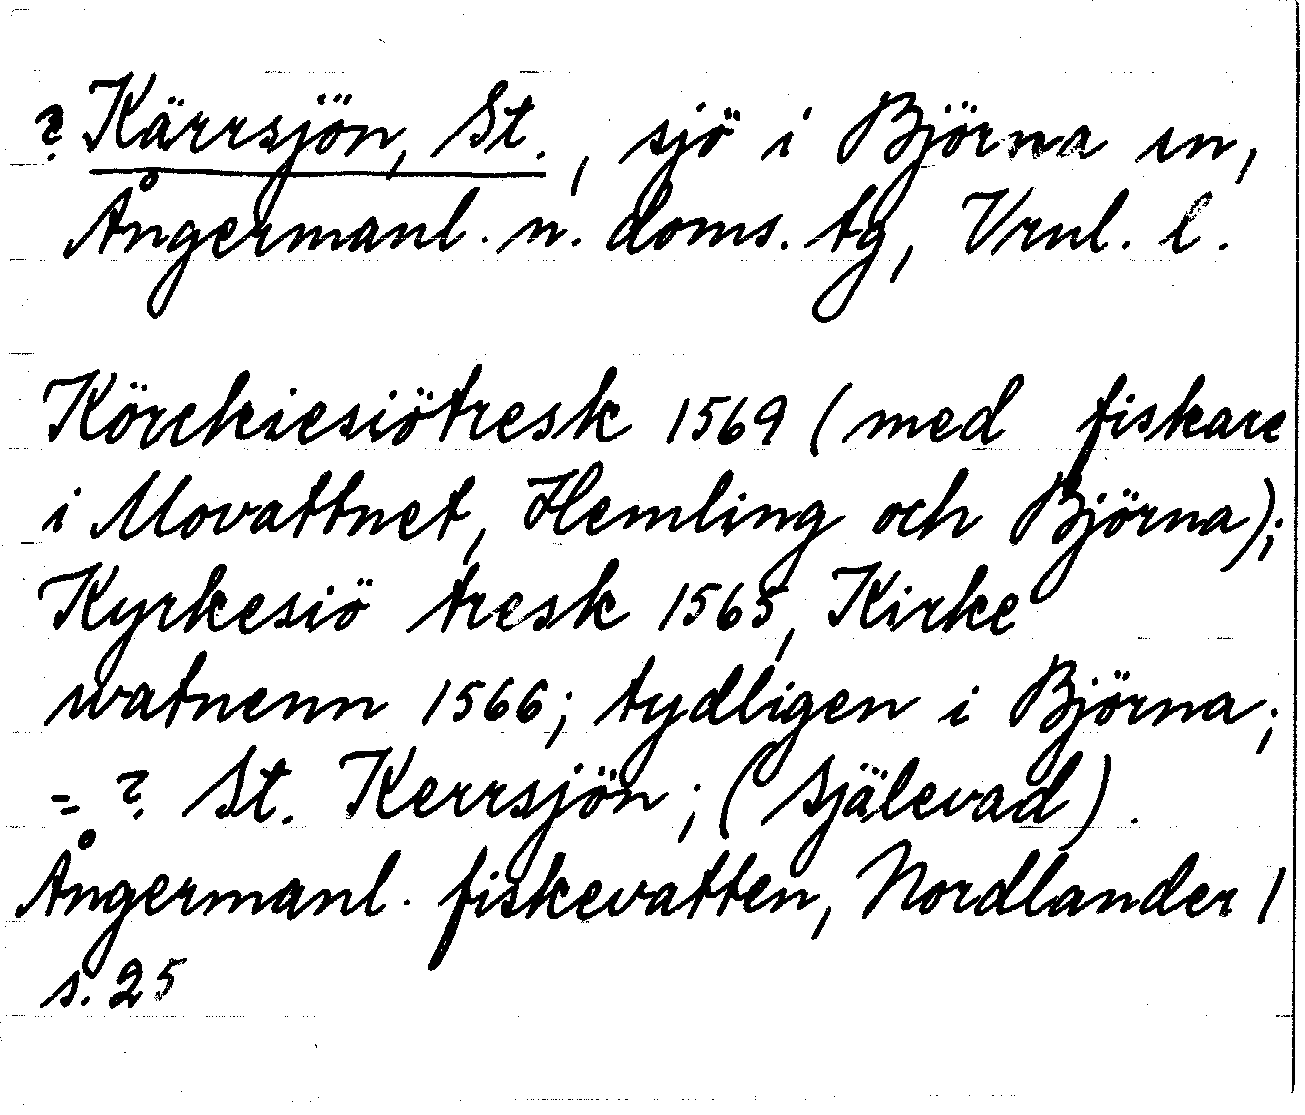 ? Kärrsjön, St., sjö i Björna sn,
Ångermanl. n. doms. tg, Vrnl. l.
Körckiesiötresk 1569 (med fiskare
i Movattnet, Hemling och Björna);
Kyrkesiö tresk 1565, Kirke
watnenn 1566; tydligen i Björna;
= ? St. Kerrsjön; (Själevad).
Ångermanl. fiskevatten, Nordlander 1
s. 25